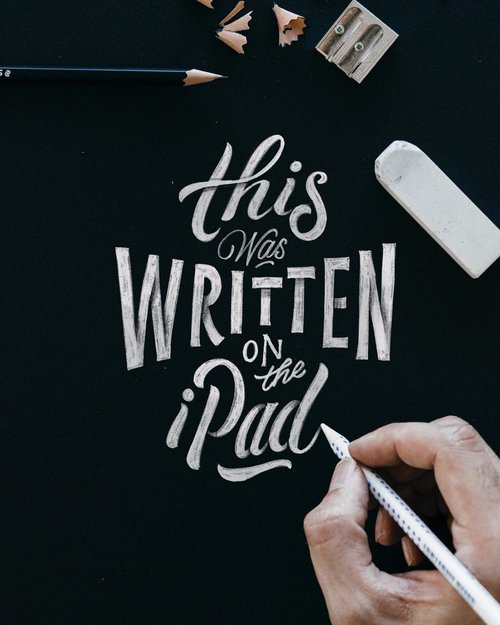 this
was
WRITTEN
ON
the
iPad